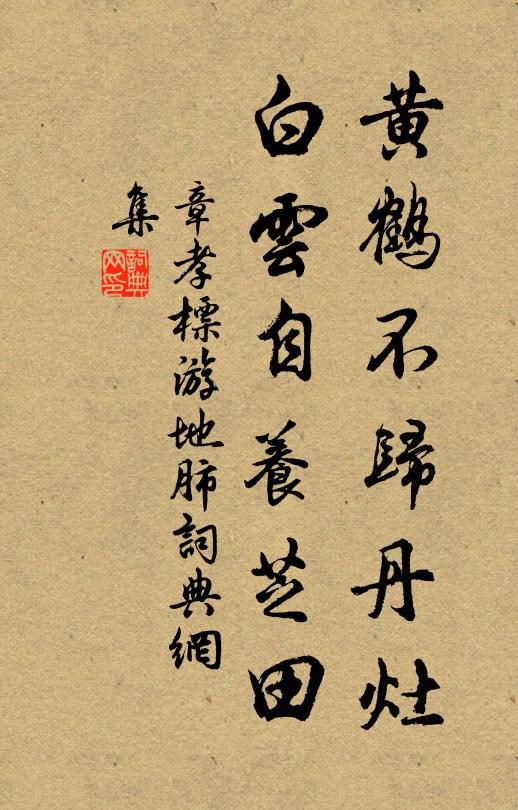 黄鶴不歸丹灶
白雲自養芝田
章孝標游地肺詞典網
集
詞典
网印